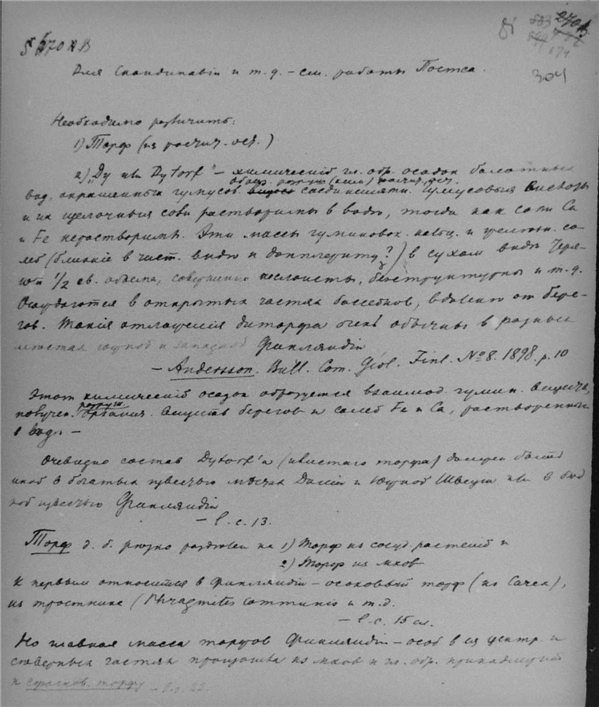 270 B
304
Для Скандинавiи и т.д. – см. работы Поста.
Необходимо различить:
1) Торф (из расчит. ост.)
2) „Dy или Dytorf" – химическiй гл. обр. осадок болотных
вод, окрашенных гумусов. соединенiями. Гумусовыя кислоты
и их щелочныя соли растворимы в воды, тогда как соли Ca
и Fe нерастворимы. Эти массы гуминовок. извщ. и щелочн. со
лей (близкiе в чист. виды к допплериту?) в сухом виды теря
ют 1/2 св. объема, совершенно неслоисты, безструктурны и т.д.
Осаждаются в открытых частях бассейнов, вдалеке от бере-
гов. Такiя отложенiя дитторфа очень обычны в разных
местах южной и западной Финляндiи
– Andersson. Bull. Com. Géol. Finl. No 8. 1898. p. 10
Этот химическiй осадок образуется взаимод. гумин. веществ,
получен. органич. веществ берегов и солей Fe и Ca, растворенных
в воды –
Очевидно состав Dytorf'а (илистаго торфа) должен быть
иной в богатых известью мстах Данiи и Южной Швецiи или в бд
ной известью Финляндiи
– l.c. 13.
Торф д. б. рзко раздлен на 1) Торф из сосуд. растенiй и
2) Торф из мхов
К первым относится в Финляндiи – осоковый торф (из Carex),
из тростника (Phragmites communis и т.д.
– l.c. 15 сл.
Но главная масса торфов Финляндiи – особ. в ея центр. и
сверных частях произошла из мхов и гл. обр. принадлежит
к сфагнов. торфу – l.c. 22.